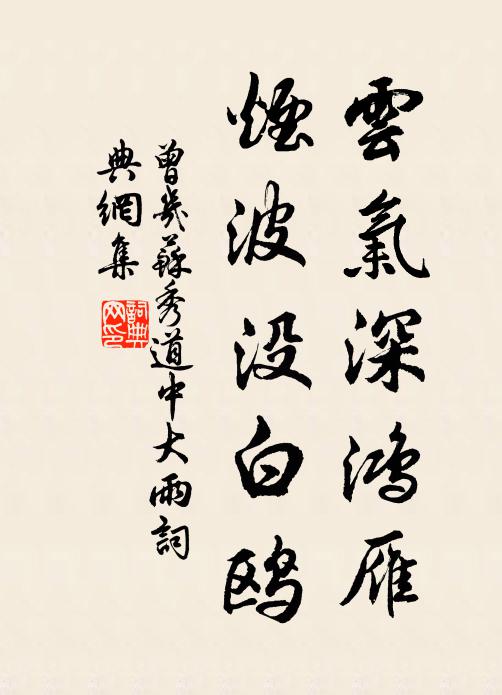 雲氣深鴻雁
煙波没白鸥
曾幾蘇秀道中大雨詞
典網集
詞典網印